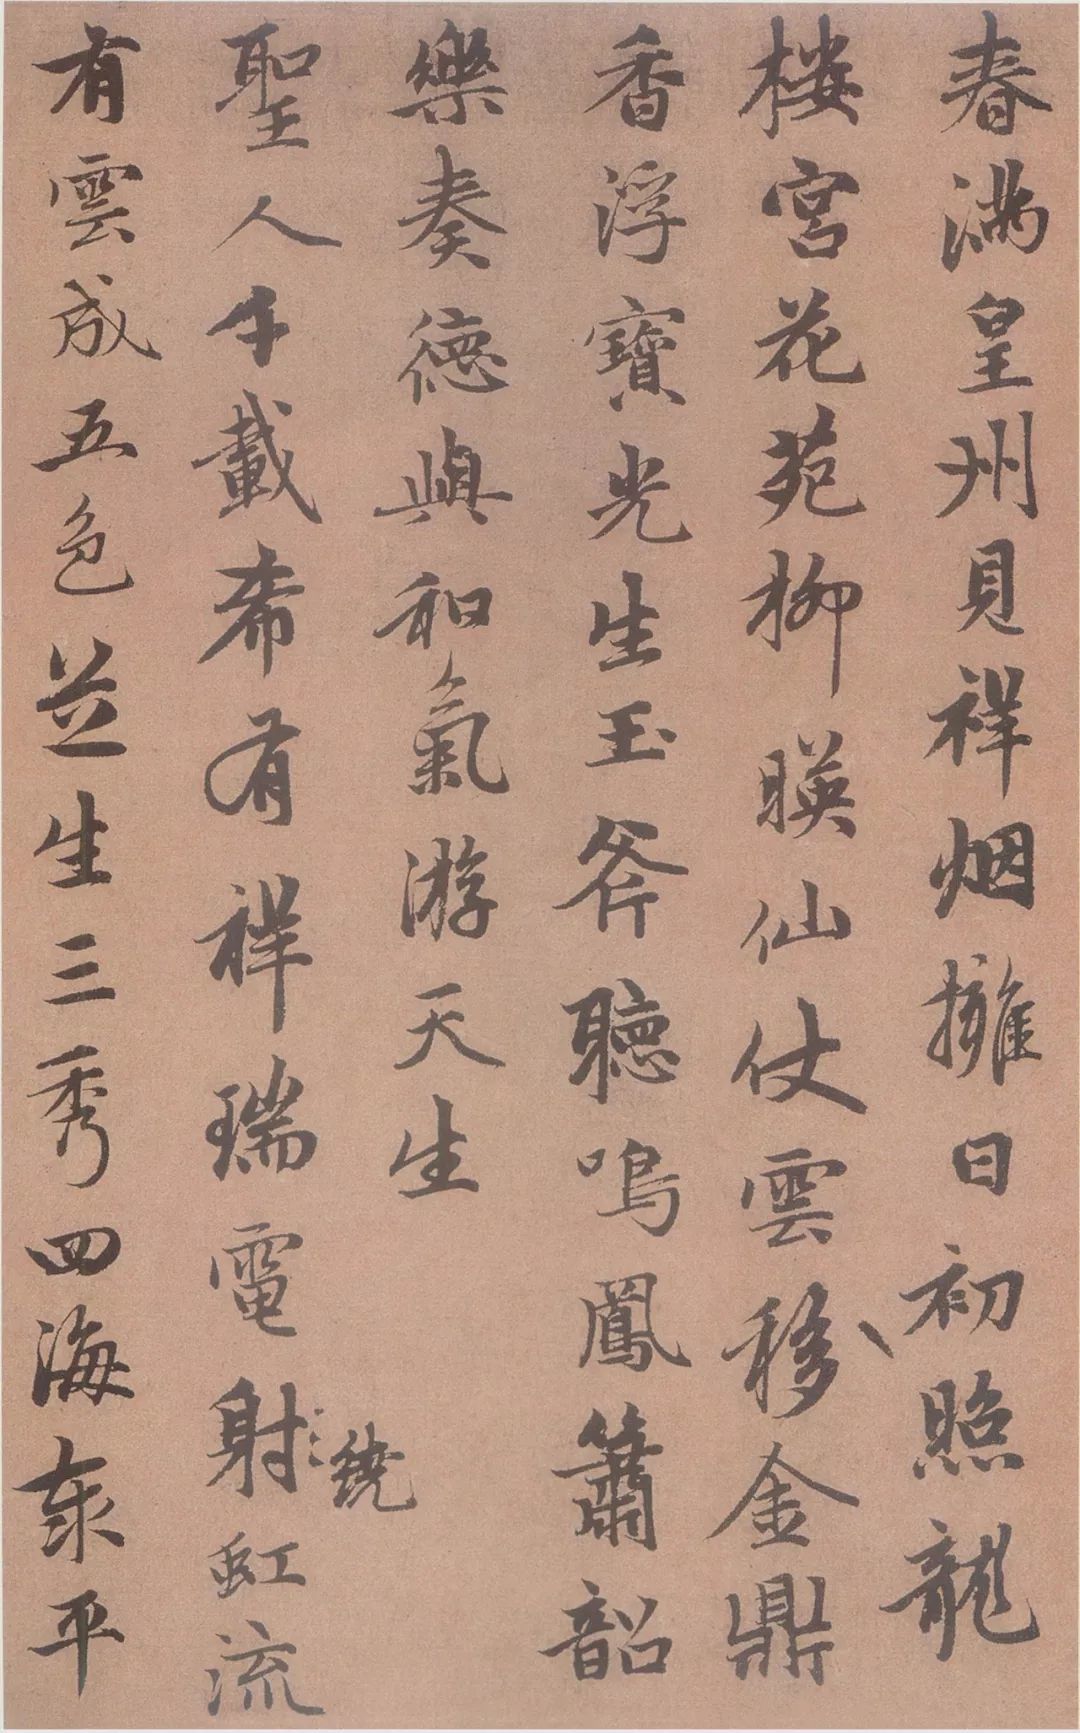 春滿皇州見祥烟擁日初照龍
楼宮花苑柳暎仙仗雲移金鼎
香浮寶光生玉斧聽鳴鳳簫韶
樂奏德與和氣游天生
繞
聖人千載希有祥瑞電射虹流
有雲成五色芝生三秀四海泰平